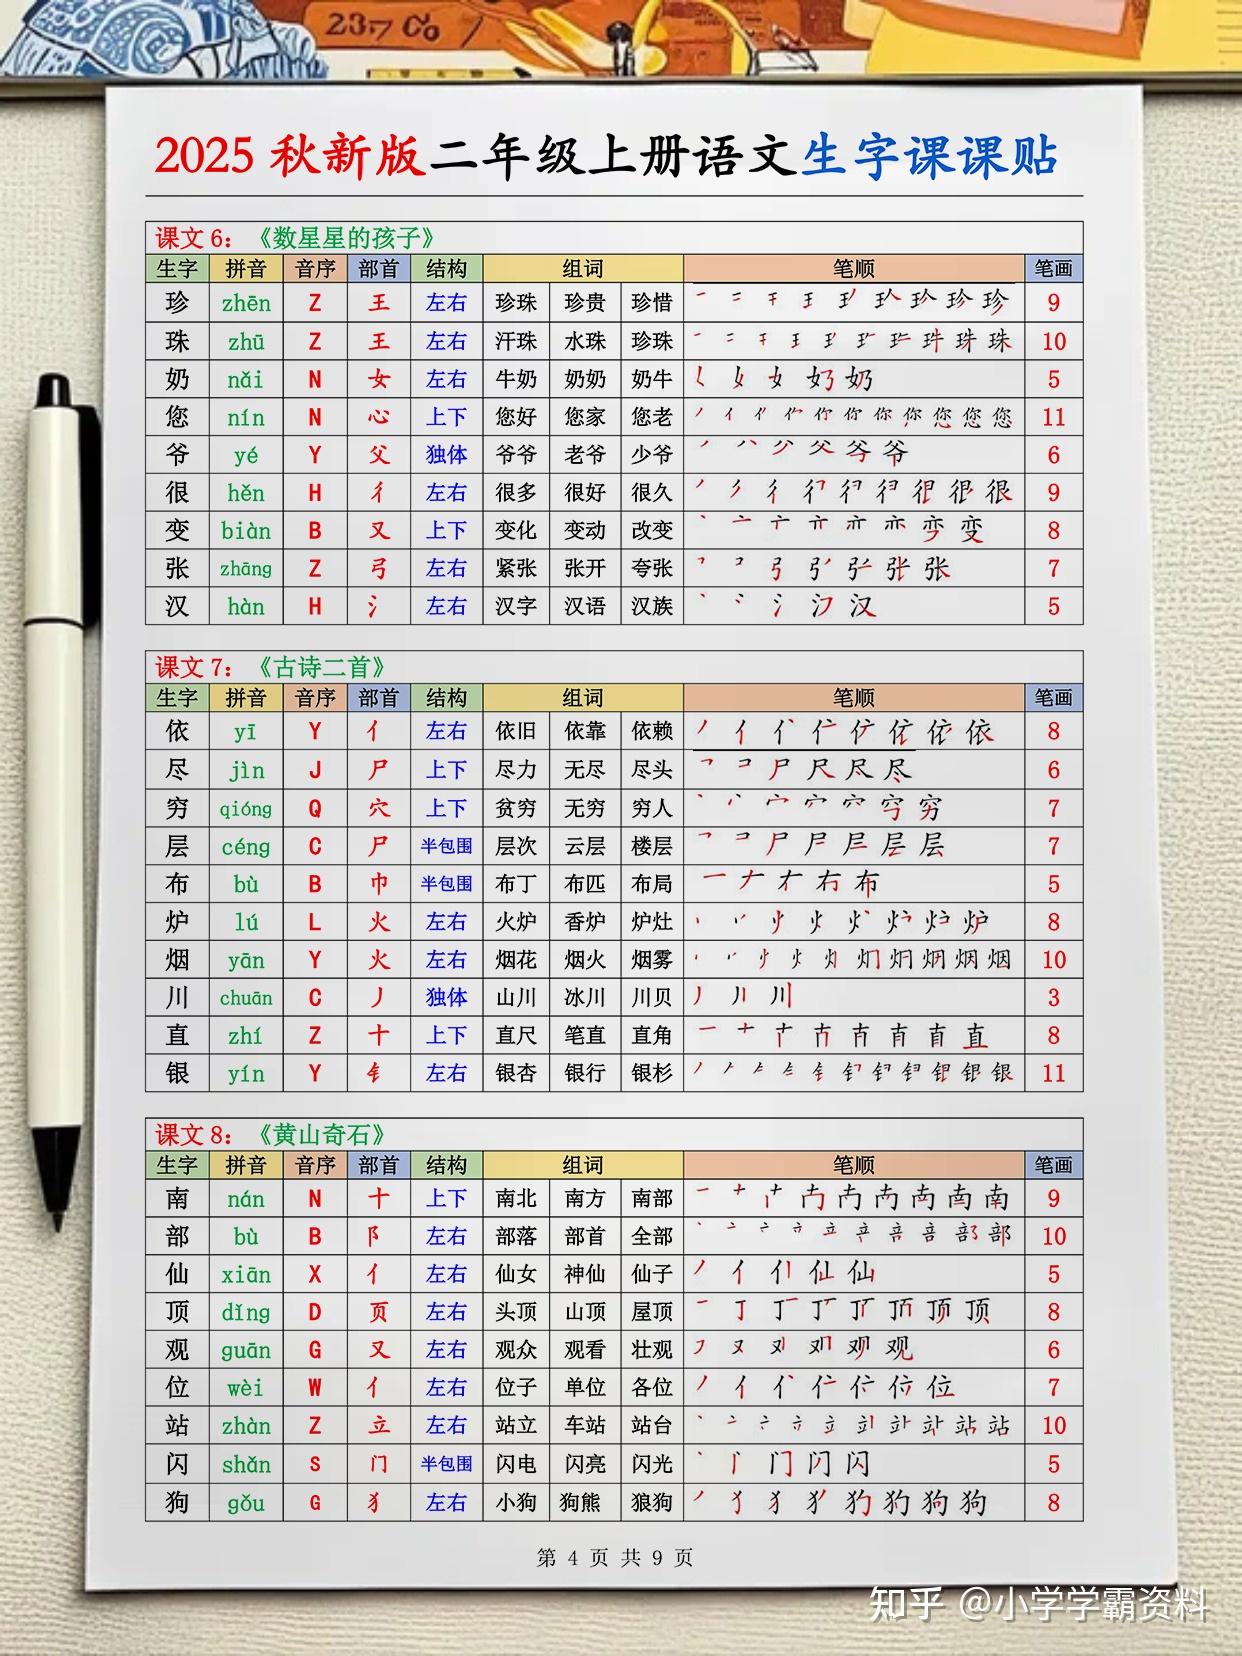 23.7 Co
2025 秋新版二年级上册语文生字课课贴
课文 6：《数星星的孩子》
生字 拼音 音序 部首 结构 组词 笔顺 笔画
珍 zhēn Z 王 左右 珍珠 珍贵 珍惜 9
珠 zhū Z 王 左右 汗珠 水珠 珍珠 10
奶 nǎi N 女 左右 牛奶 奶奶 奶牛 5
您 nín N 心 上下 您好 您家 您老 11
爷 yé Y 父 独体 爷爷 老爷 少爷 6
很 hěn H 彳 左右 很多 很好 很久 9
变 biàn B 又 上下 变化 变动 改变 8
张 zhāng Z 弓 左右 紧张 张开 夸张 7
汉 hàn H 氵 左右 汉字 汉语 汉族 5
课文 7：《古诗二首》
生字 拼音 音序 部首 结构 组词 笔顺 笔画
依 yī Y 亻 左右 依旧 依靠 依赖 8
尽 jìn J 尸 上下 尽力 无尽 尽头 6
穷 qióng Q 穴 上下 贫穷 无穷 穷人 7
层 céng C 尸 半包围 层次 云层 楼层 7
布 bù B 巾 半包围 布丁 布匹 布局 5
炉 lú L 火 左右 火炉 香炉 炉灶 8
烟 yān Y 火 左右 烟花 烟火 烟雾 10
川 chuān C 丿 独体 山川 冰川 川贝 3
直 zhí Z 十 上下 直尺 笔直 直角 8
银 yín Y 钅 左右 银杏 银行 银杉 11
课文 8：《黄山奇石》
生字 拼音 音序 部首 结构 组词 笔顺 笔画
南 nán N 十 上下 南北 南方 南部 9
部 bù B 阝 左右 部落 部首 全部 10
仙 xiān X 亻 左右 仙女 神仙 仙子 5
顶 dǐng D 页 左右 头顶 山顶 屋顶 8
观 guān G 又 左右 观众 观看 壮观 6
位 wèi W 亻 左右 位子 单位 各位 7
站 zhàn Z 立 左右 站立 车站 站台 10
闪 shǎn S 门 半包围 闪电 闪亮 闪光 5
狗 gǒu G 犭 左右 小狗 狗熊 狼狗 8
第 4 页 共 9 页
知乎 @小学学霸资料